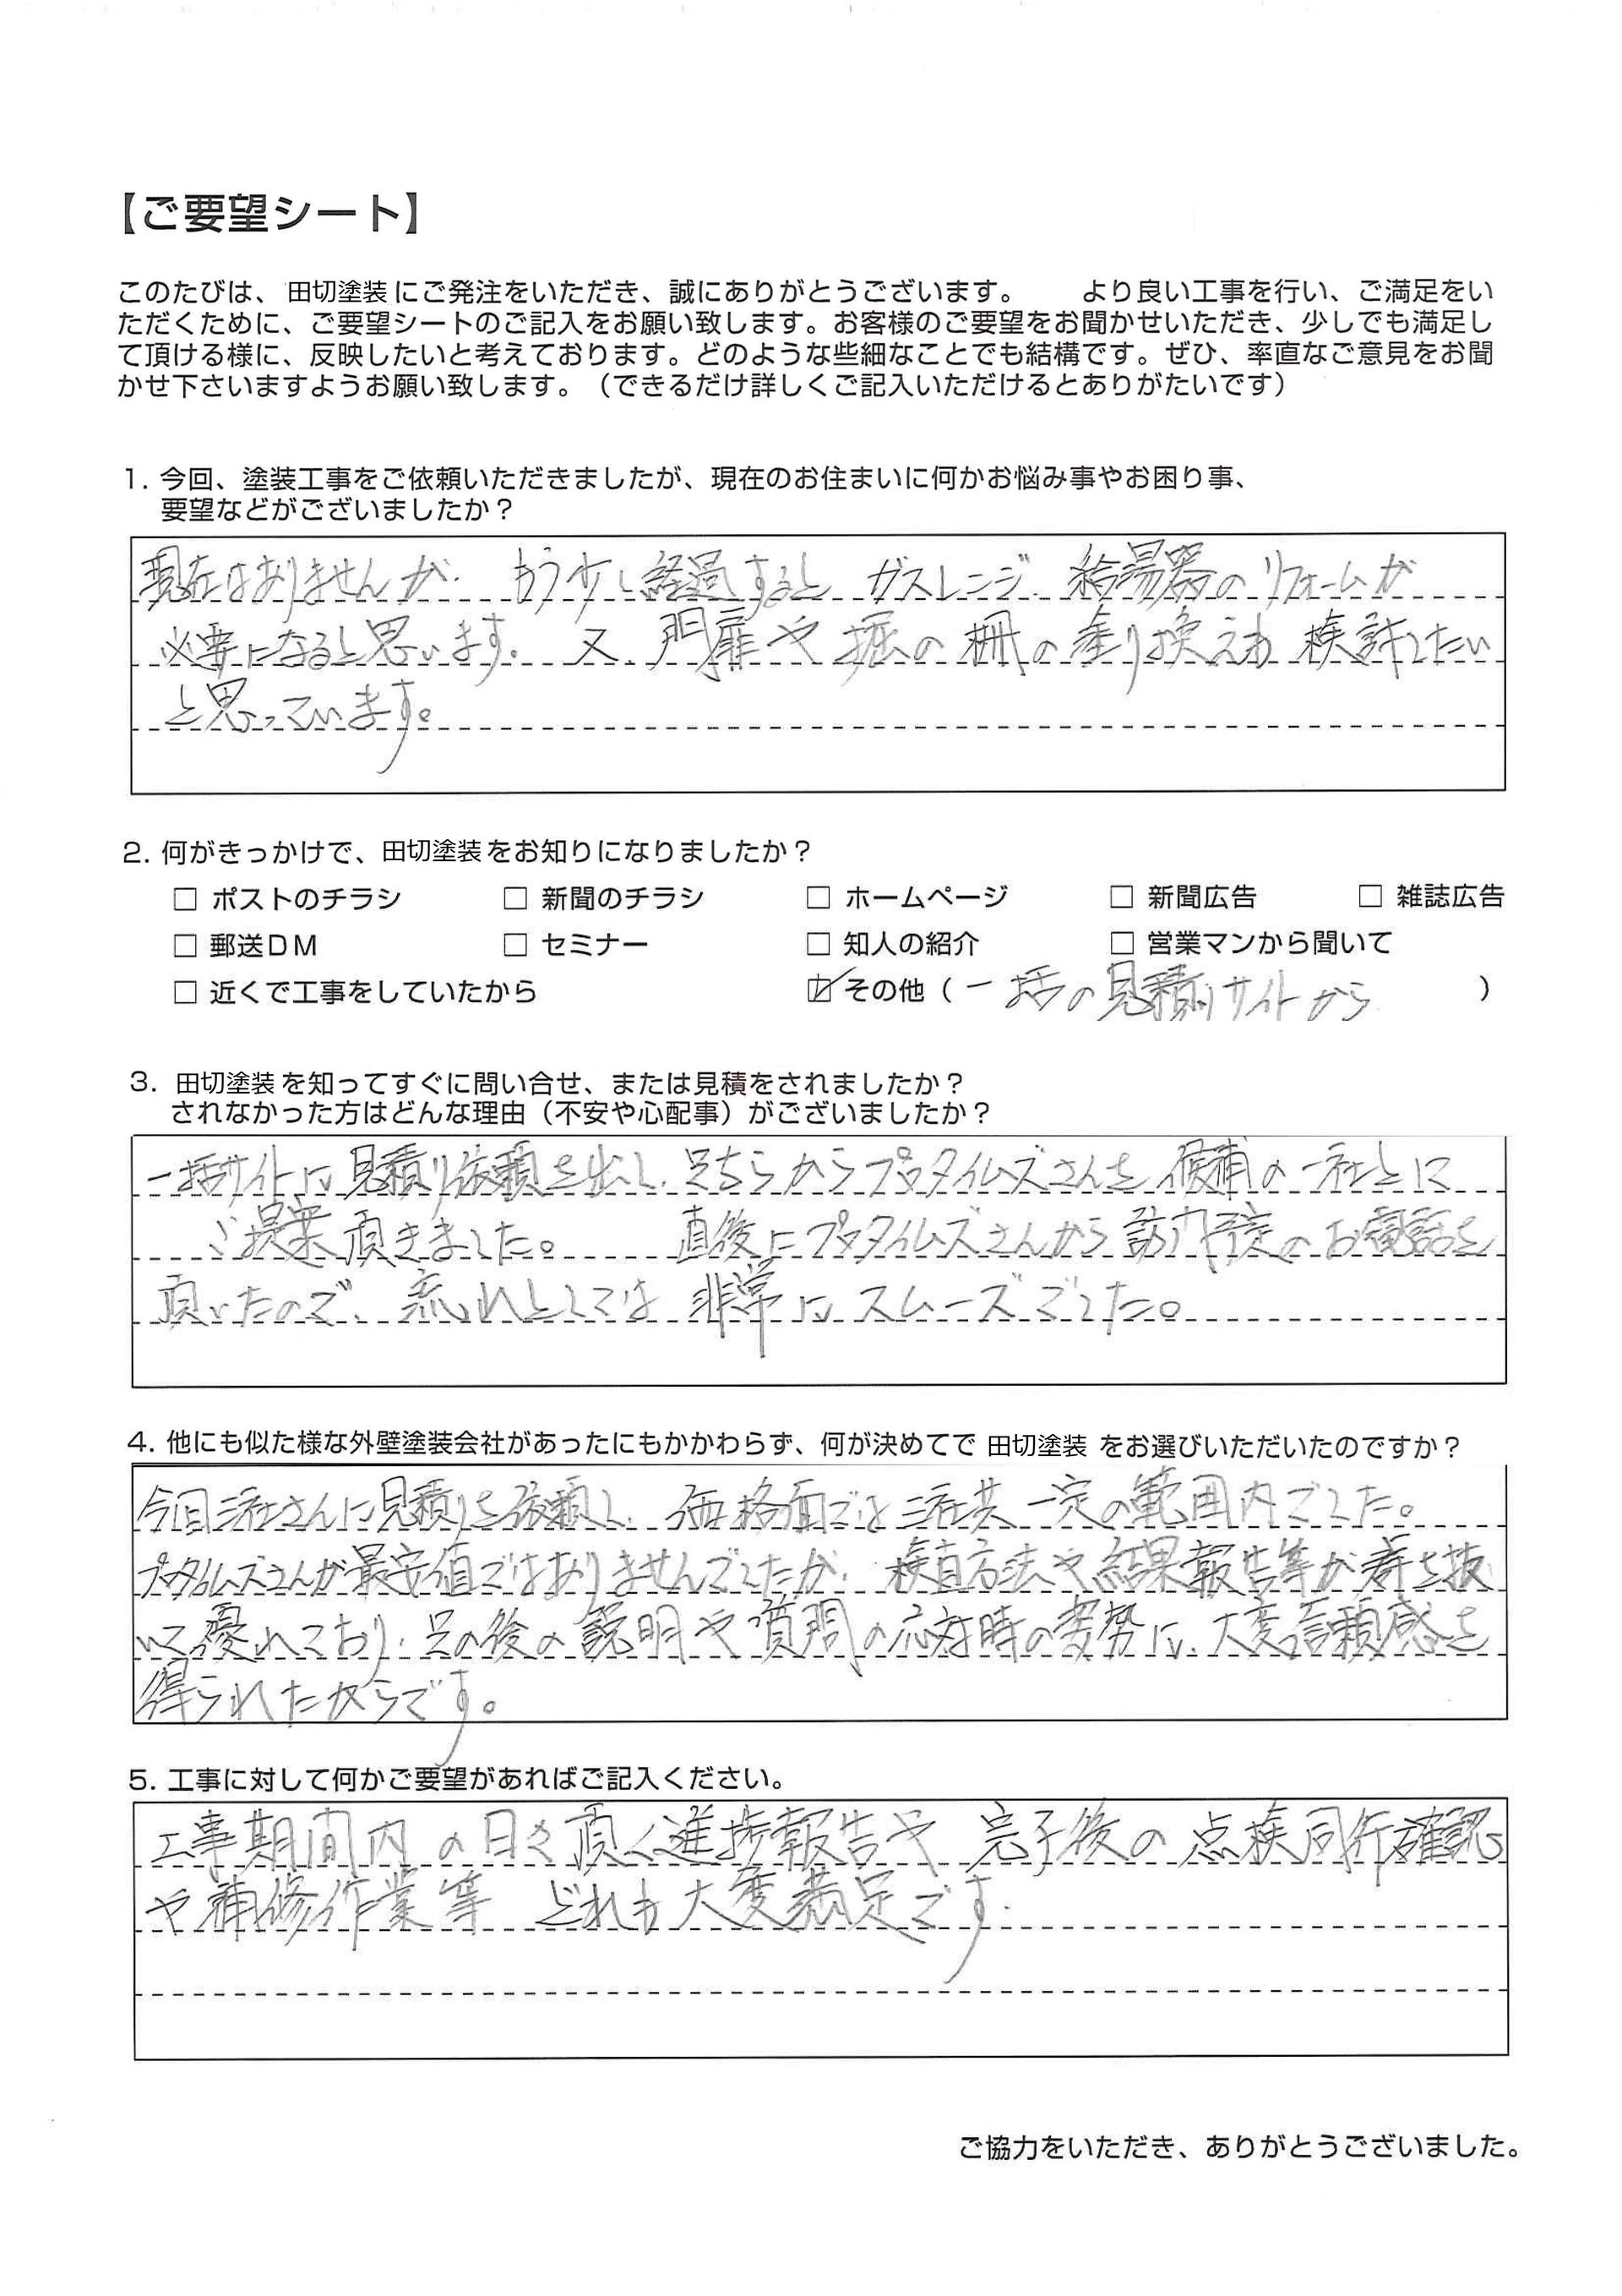 【ご要望シート】
このたびは、田切塗装にご発注をいただき、誠にありがとうございます。　　より良い工事を行い、ご満足をい
ただくために、ご要望シートのご記入をお願い致します。お客様のご要望をお聞かせいただき、少しでも満足し
て頂ける様に、反映したいと考えております。どのような些細なことでも結構です。ぜひ、率直なご意見をお聞
かせ下さいますようお願い致します。（できるだけ詳しくご記入いただけるとありがたいです）
1. 今回、塗装工事をご依頼いただきましたが、現在のお住まいに何かお悩み事やお困り事、
要望などがございましたか？
現在はありませんが、もう少し経過すると ガスレンジ、給湯器のリフォームが
必要になると思います。又、門扉や堀の柵の塗り換えも検討したい
と思っています。
2. 何がきっかけで、田切塗装をお知りになりましたか？
□ ポストのチラシ　□ 新聞のチラシ　□ ホームページ　□ 新聞広告　□ 雑誌広告
□ 郵送DM　□ セミナー　□ 知人の紹介　□ 営業マンから聞いて
□ 近くで工事をしていたから　☑ その他（一括の見積りサイトから　）
3. 田切塗装を知ってすぐに問い合せ、または見積をされましたか？
されなかった方はどんな理由（不安や心配事）がございましたか？
一括サイトに見積り依頼を出し、そちらからプロタイムズさんを候補の一社として
ご提案頂きました。直後にプロタイムズさんから訪問予定のお電話を
頂いたので、流れとしては非常にスムーズでした。
4. 他にも似た様な外壁塗装会社があったにもかかわらず、何が決めてで 田切塗装 をお選びいただいたのですか？
今回三社さんに見積りを依頼し、価格面では三社共一定の範囲内でした。
プロタイムズさんが最安値ではありませんでしたが、検査方法や結果報告等が群を抜
いて優れており、その後の説明や質問の応対時の姿勢に、大変信頼感を
得られたからです。
5. 工事に対して何かご要望があればご記入ください。
工事期間内の日々頂く進捗報告や完了後の点検同行確認
や補修作業等 どれも大変満足です。
ご協力をいただき、ありがとうございました。